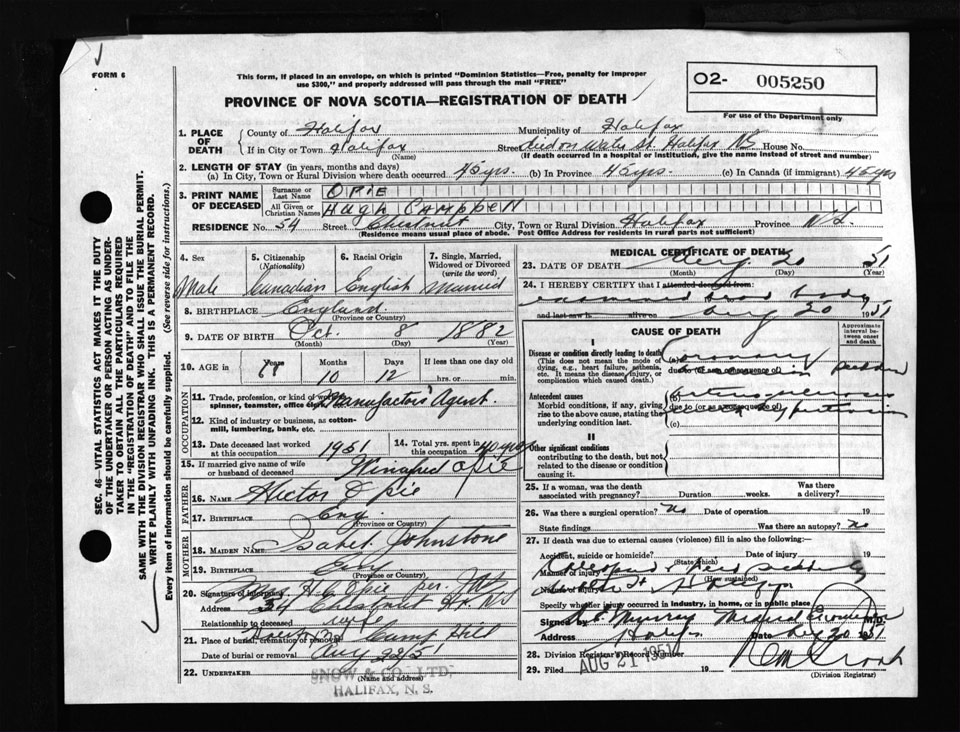 FORM 6
This form, if placed in an envelope, on which is printed "Dominion Statistics—Free, penalty for improper
use $300," and properly addressed will pass through the mail "FREE"
O2- 005250
For use of the Department only
PROVINCE OF NOVA SCOTIA—REGISTRATION OF DEATH
SEC. 46—VITAL STATISTICS ACT MAKES IT THE DUTY
OF THE UNDERTAKER OR PERSON ACTING AS UNDER-
TAKER TO OBTAIN ALL THE PARTICULARS REQUIRED
IN THE "REGISTRATION OF DEATH" AND TO FILE THE
SAME WITH THE DIVISION REGISTRAR WHO SHALL ISSUE THE BURIAL PERMIT.
WRITE PLAINLY WITH UNFADING INK. THIS IS A PERMANENT RECORD.
Every item of information should be carefully supplied. (See reverse side for instructions.)
1. PLACE OF DEATH
County of Halifax Municipality of Halifax
If in City or Town Halifax Street St. Halifax NS House No.
(Name) (If death occurred in a hospital or institution, give the name instead of street and number)
2. LENGTH OF STAY (in years, months and days)
(a) In City, Town or Rural Division where death occurred 45 yrs. (b) In Province 45 yrs. (c) In Canada (if immigrant) 45 yrs
3. PRINT NAME OF DECEASED
Surname or Last Name OPIE
All Given or Christian Names HUGH CAMPBELL
RESIDENCE No. 54 Street Chestnut City, Town or Rural Division Halifax Province N.S.
(Residence means usual place of abode. Post Office Address for residents in rural parts not sufficient)
4. Sex 5. Citizenship (Nationality) 6. Racial Origin 7. Single, Married, Widowed or Divorced (write the word)
Male Canadian English Married
8. BIRTHPLACE England
(Province or Country)
9. DATE OF BIRTH Oct. 8 1882
(Month) (Day) (Year)
10. AGE in Months Days If less than one day old
10 12 hrs. or min.
OCCUPATION
11. Trade, profession, or kind of work as spinner, teamster, office clerk Manufactors Agent.
12. Kind of industry or business, as cotton-
mill, lumbering, bank, etc.
13. Date deceased last worked at this occupation 1951 14. Total yrs. spent in this occupation 40 yrs
15. If married give name of wife or husband of deceased Winifred Opie
FATHER
16. NAME Hector Opie
17. BIRTHPLACE Eng.
(Province or Country)
MOTHER
18. MAIDEN NAME Isabel Johnstone
19. BIRTHPLACE Eng
(Province or Country)
20. Signature of informant Mrs H.C. Opie per.
Address 54 Chestnut St.
Relationship to deceased wife
21. Place of burial, cremation or removal Camp Hill
Date of burial or removal Aug 22/51
22. UNDERTAKER SNOW & CO., LTD.,
(Name and address)
HALIFAX, N. S.
MEDICAL CERTIFICATE OF DEATH
23. DATE OF DEATH Aug. 20 51
(Month) (Day) (Year)
24. I HEREBY CERTIFY that I attended deceased from:
examined dead body
and last saw is alive on Aug 20 1951
CAUSE OF DEATH
Approximate interval between onset and death
I
Disease or condition directly leading to death
(This does not mean the mode of dying, e.g., heart failure, asthenia, etc. It means the disease, injury, or complication which caused death.)
(a) Coronary
due to (or as a consequence of) sudden
Antecedent causes
Morbid conditions, if any, giving rise to the above cause, stating the underlying condition last.
due to (or as a consequence of)
(c)
II
Other significant conditions
contributing to the death, but not related to the disease or condition causing it.
25. If a woman, was the death associated with pregnancy? Duration weeks. Was there a delivery?
26. Was there a surgical operation? no Date of operation 19
State findings Was there an autopsy? no
27. If death was due to external causes (violence) fill in also the following:—
Accident, suicide or homicide? Date of injury 19
(State which)
Manner of injury Collapsed & died suddenly
(How sustained)
Nature of injury
Specify whether injury occurred in industry, in home, or in public place
Signed by Murray Medical Examiner M.D.
Address Halifax Date Aug 20 1951
28. Division Registrar's Record Number
29. Filed AUG 21 1951 19
(Division Registrar)